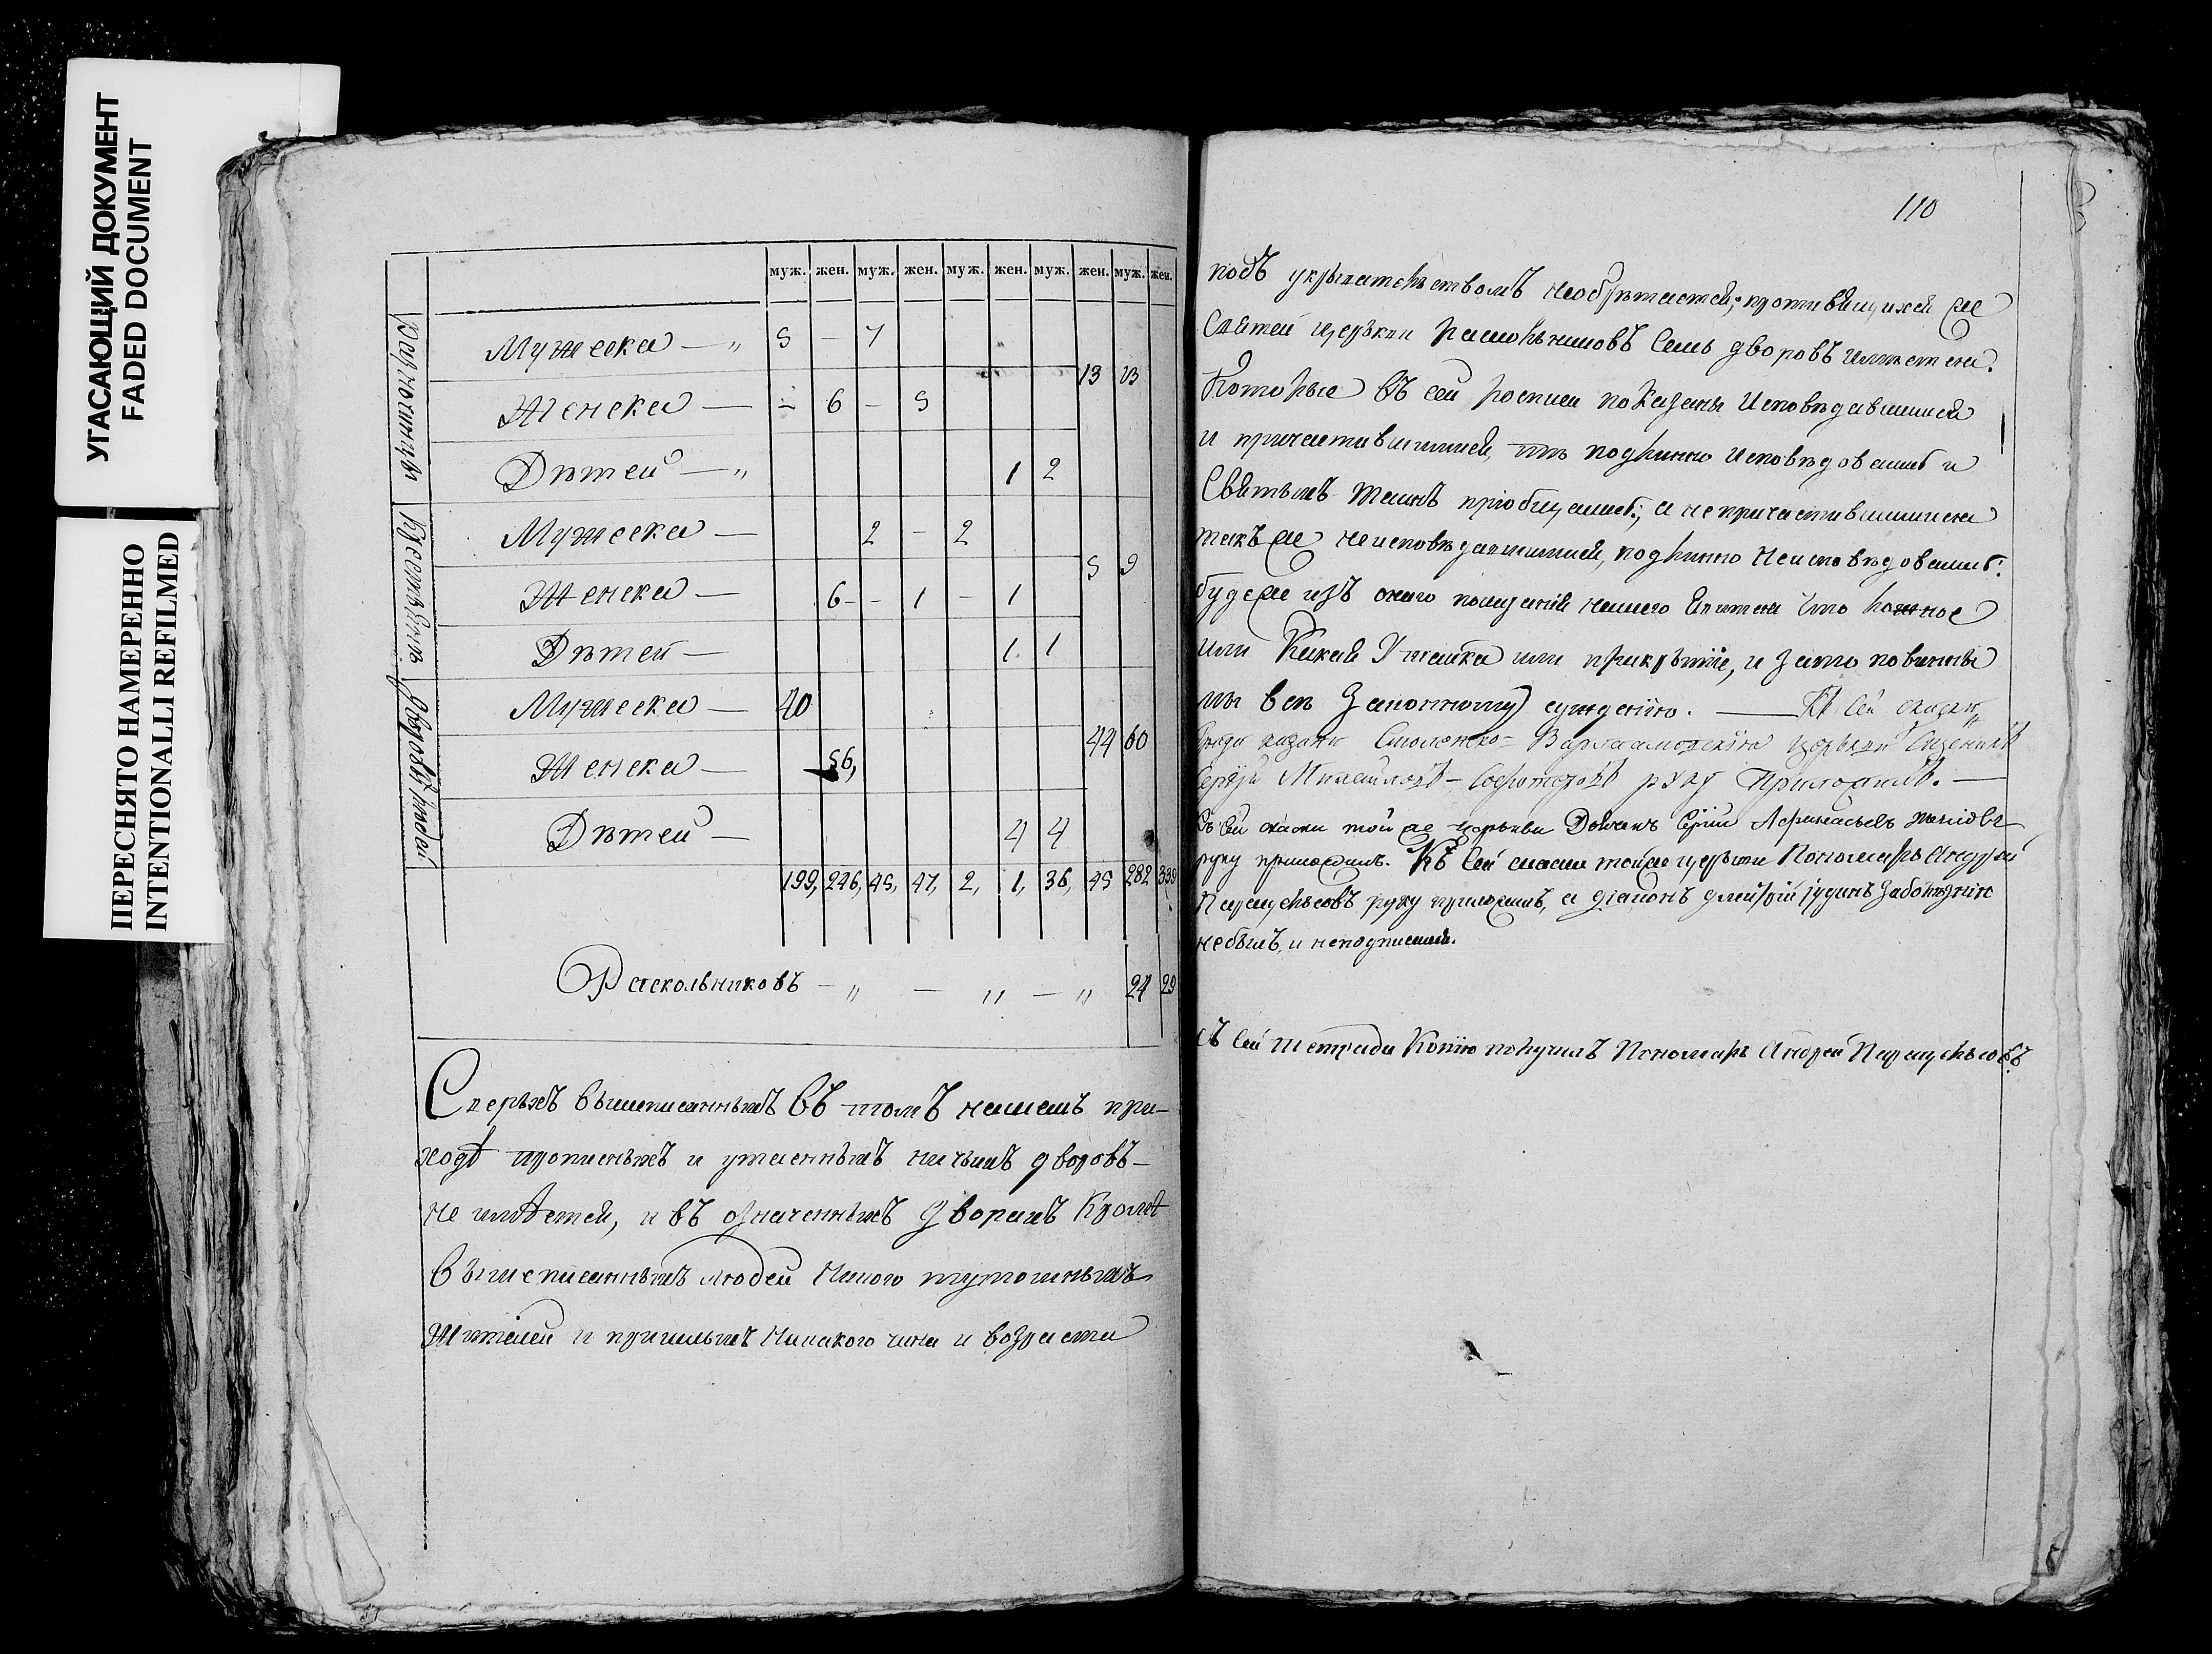 УГАСАЮЩИЙ ДОКУМЕНТ
FADED DOCUMENT
ПЕРЕСНЯТО НАМЕРЕННО
INTENTIONALLI REFILMED
муж. жен. муж. жен. муж. жен. муж. жен. муж. жен.
Мужеска — „ 5 — 7
13 13
Женска — — 6 — 5
Дѣтей — „ 1 2
Мужеска — 2 — 2
5 9
Женска — 6 — — 1 — 1
Дѣтей — 1 1
Мужеска — 40
44 60
Женска — 56,
Дѣтей — 4 4
Дворовых людей
199, 246, 45, 47, 2, 1, 36, 45 282 339
Раскольниковъ — „ — „ — „ 24 29
Сверьхъ вышеписанныхъ въ томъ нашемъ при-
ходѣ прописныхъ и утаенныхъ ничьихъ дворовъ —
не имѣетей, и въ означенныхъ дворахъ кромѣ
вышеписанныхъ людей никого тутошныхъ
жителей и пришлыхъ никакого чина и возраста
110
подъ укрывательствомъ необрѣтается; противящихся же
святей церкви раскольниковъ семь дворовъ имѣетца.
Которые въ сей росписи показаны исповѣдавшимися
и причастившимися, тѣ подлинно исповѣдовались и
Святыхъ таинъ приобщались; а не причастившимися
такъ же неисповѣдавшимися, подлинно неисповѣдовались:
буде же изъ онаго показания нашего явитца что ложное
или какая утайка или прикрытие, и зато повинны
мы все законному суждению. — Къ сей скаски
казани Смоленско-Варлаамовския церькви Священникъ
Сергѣй Михайловъ руку Приложилъ. —
Къ сей скаски той же церькви Дьячекъ
руку приложилъ. Къ сей скаски той же церкви Пономарь Андрей
руку приложилъ, а діаконъ заболезнию
небылъ, и неподписался.
съ сей тетради Копию получилъ Пономарь Андрей